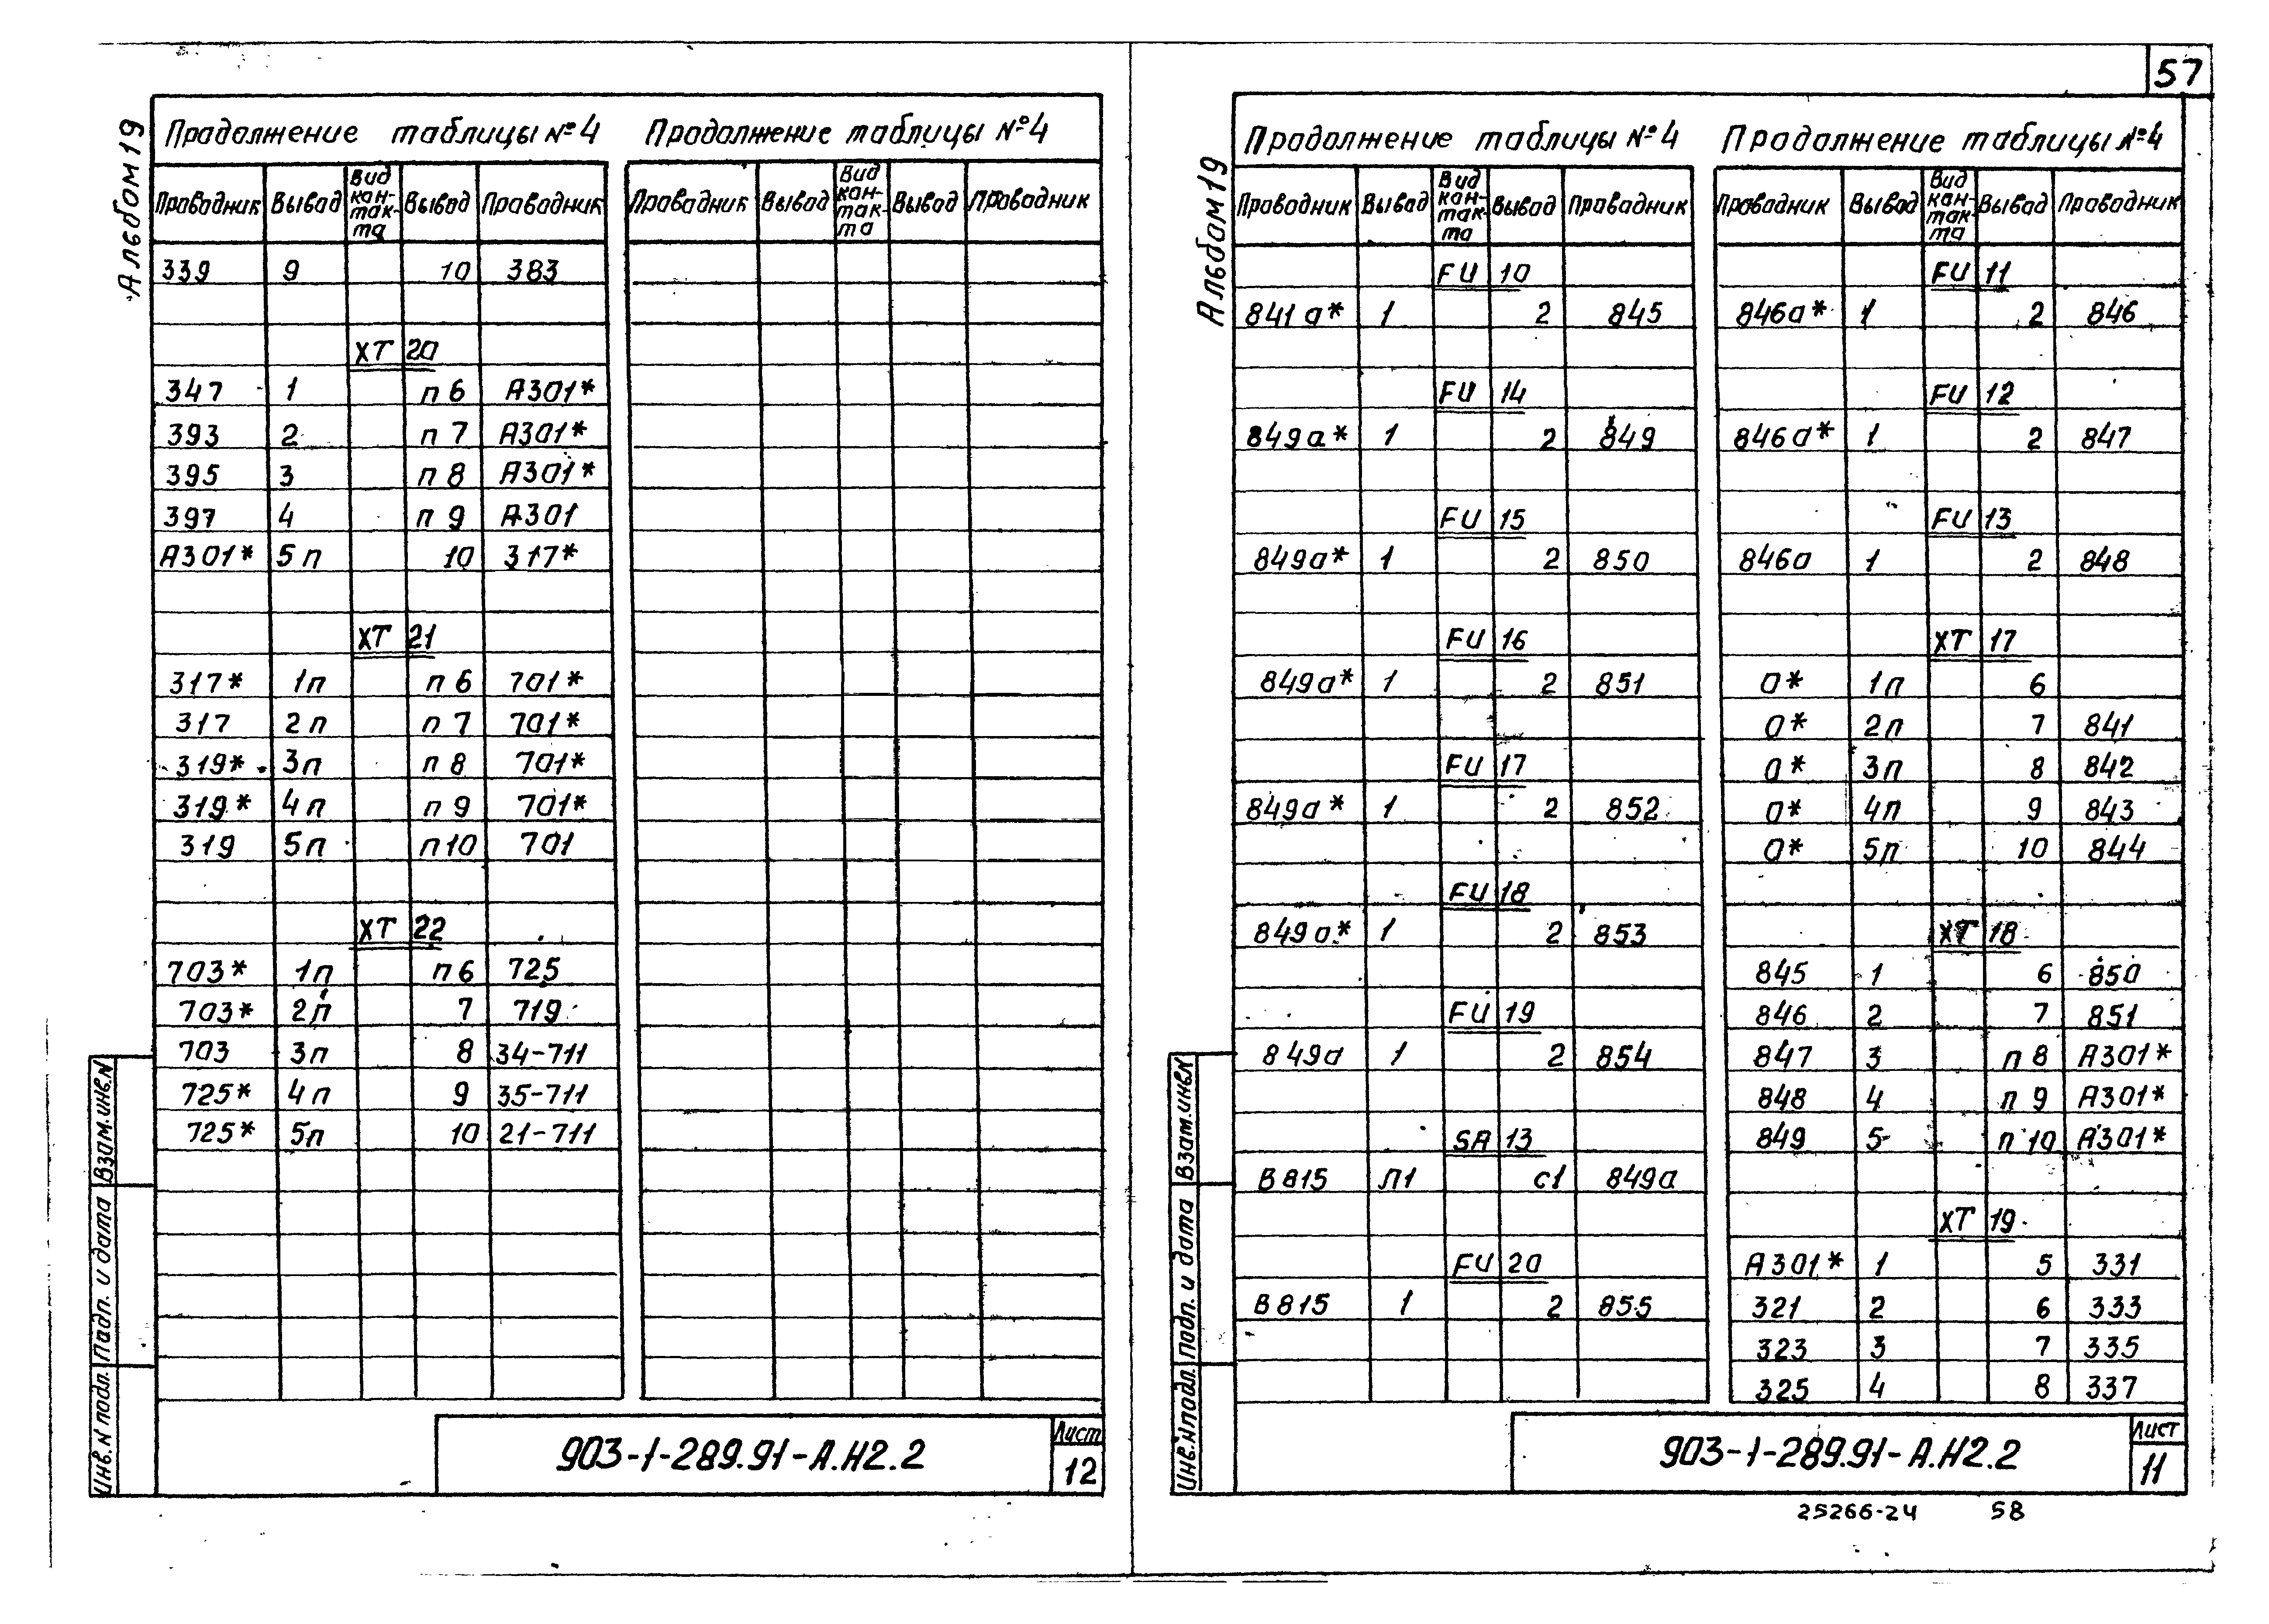 57
Альбом 19
Продолжение таблицы №4
Проводник Вывод Вид кон-так-та Вывод Проводник
339 9 10 383
XT 20
347 1 п 6 A301*
393 2 п 7 A301*
395 3 п 8 A301*
397 4 п 9 A301
A301* 5 п 10 317*
XT 21
317* 1п п 6 701*
317 2 п п 7 701*
319* 3п п 8 701*
319* 4 п п 9 701*
319 5п п10 701
XT 22
703* 1п п 6 725
703* 2 п 7 719
703 3п 8 34-711
725* 4 п 9 35-711
725* 5п 10 21-711
Продолжение таблицы №4
Проводник Вывод Вид кон-так-та Вывод Проводник
Взам. инв. N
Подп. и дата
Инв. N подл.
903-1-289.91-А.Н2.2
Лист
12
Альбом 19
Продолжение таблицы №4
Проводник Вывод Вид кон-так-та Вывод Проводник
FU 10
841а* 1 2 845
FU 14
849а* 1 2 849
FU 15
849а* 1 2 850
FU 16
849а* 1 2 851
FU 17
849а* 1 2 852
FU 18
849а* 1 2 853
FU 19
849а 1 2 854
SA 13
В815 Л1 с1 849а
FU 20
В815 1 2 855
Продолжение таблицы №4
Проводник Вывод Вид кон-так-та Вывод Проводник
FU 11
846а* 1 2 846
FU 12
846а* 1 2 847
FU 13
846а 1 2 848
XT 17
0* 1п 6
0* 2п 7 841
0* 3п 8 842
0* 4п 9 843
0* 5п 10 844
XT 18
845 1 6 850
846 2 7 851
847 3 п 8 A301*
848 4 п 9 A301*
849 5 п 10 A301*
XT 19
A301* 1 5 331
321 2 6 333
323 3 7 335
325 4 8 337
Взам. инв. N
Подп. и дата
Инв. N подл.
903-1-289.91-А.Н2.2
Лист
11
25266-24 58